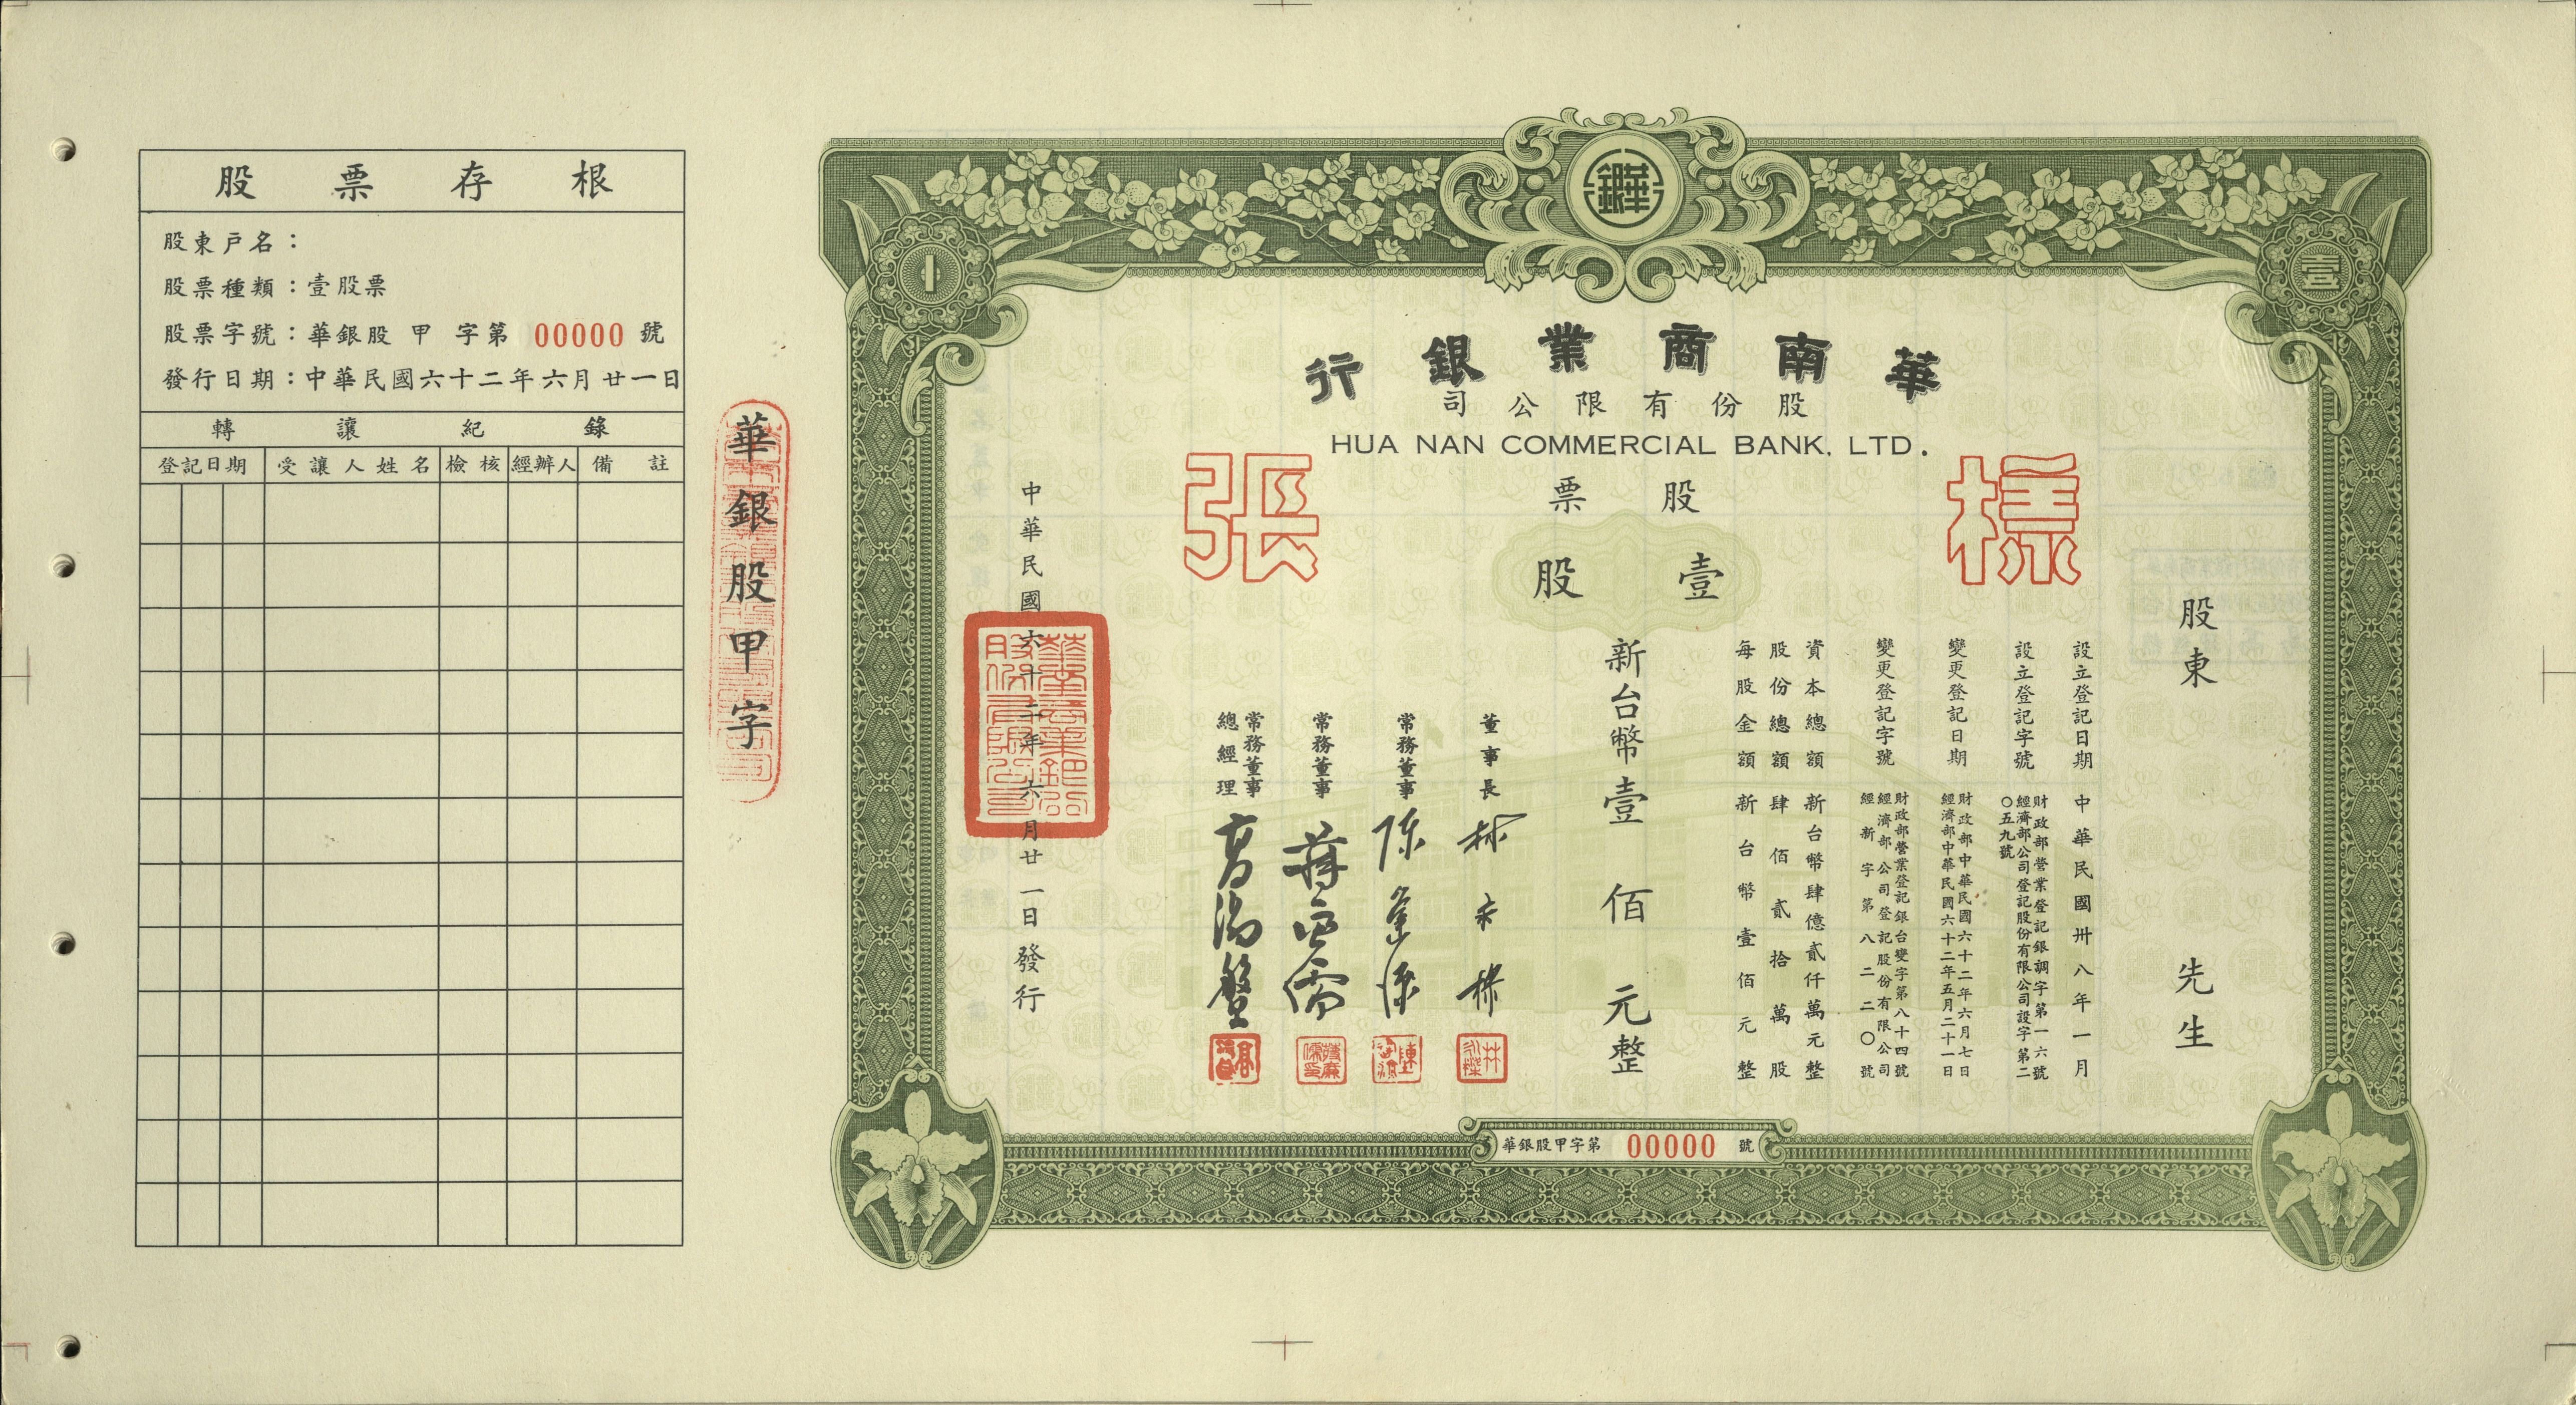 股票存根
股東戶名：
股票種類：壹股票
股票字號：華銀股 甲 字第 00000 號
發行日期：中華民國六十二年六月廿一日
轉讓紀錄
登記日期 受讓人姓名 檢核 經辦人 備註
華銀股甲字
1
華銀
壹
華南商業銀行
股份有限公司
HUA NAN COMMERCIAL BANK, LTD.
樣張
股票
壹股
股東 先生
設立登記日期 中華民國卅八年一月
設立登記字號 財政部營業登記銀調字第一六號
經濟部公司登記股份有限公司設字第二
〇五九號
變更登記日期 財政部中華民國六十二年六月七日
經濟部中華民國六十二年五月二十一日
變更登記字號 財政部營業登記銀台變字第八十四號
經濟部公司登記股份有限公司
經新字第八二二〇號
資本總額 新台幣肆億貳仟萬元整
股份總額 肆佰貳拾萬股
每股金額 新台幣壹佰元整
新台幣壹佰元整
董事長
常務董事
常務董事
常務董事
總經理
中華民國六十二年六月廿一日發行
華南商業銀行股份有限公司
華銀股甲字第 00000 號